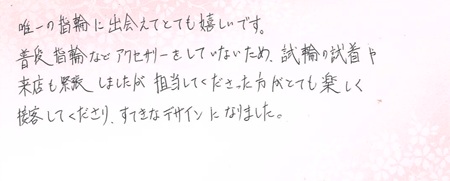 唯一の指輪に出会えてとても嬉しいです。
普段指輪などアクセサリーをしていないため、試輪の試着や
来店も緊張しましたが担当してくださった方がとても楽しく
接客してくださり、すてきなデザインになりました。